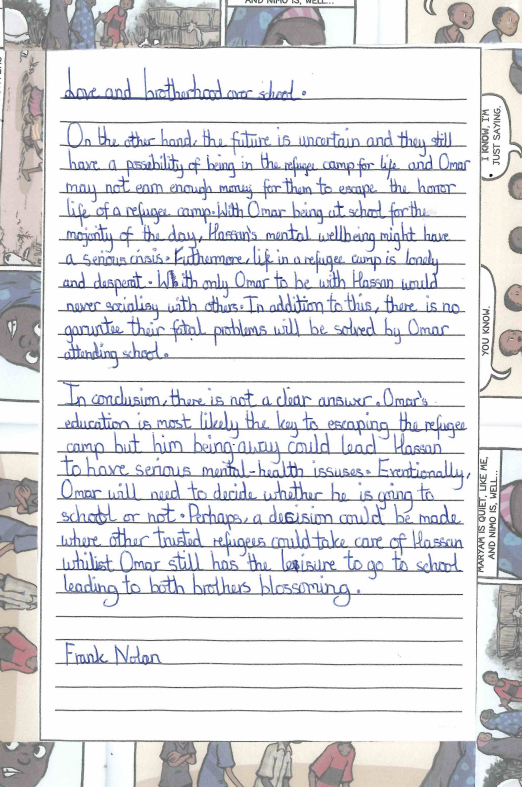 AND NIMO IS, WELL...
Love and brotherhood over school.
On the other hand, the future is uncertain and they still
have a possibility of being in the refugee camp for life and Omar
may not earn enough money for them to escape the horror
life of a refugee camp. With Omar being at school for the
majority of the day, Hassan's mental wellbeing might have
a serious crisis. Futhermore, life in a refugee camp is lonely
and desperat. With only Omar to be with Hassan would
never socialisy with others. In addition to this, there is no
garuntee their fatal problems will be solved by Omar
attending school.
In conclusion, there is not a clear answer. Omar's
education is most likely the key to escaping the refugee
camp but him being away could lead Hassan
to have serious mental-health issuses. Erentionally,
Omar will need to decide whether he is going to
school or not. Perhaps, a decision could be made
where other trusted refugees could take care of Hassan
whilist Omar still has the leisure to go to school
leading to both brothers blossoming.
Frank Nolan
I KNOW, I'M
JUST SAYING.
YOU KNOW.
MARYAM IS QUIET, LIKE ME,
AND NIMO IS, WELL...